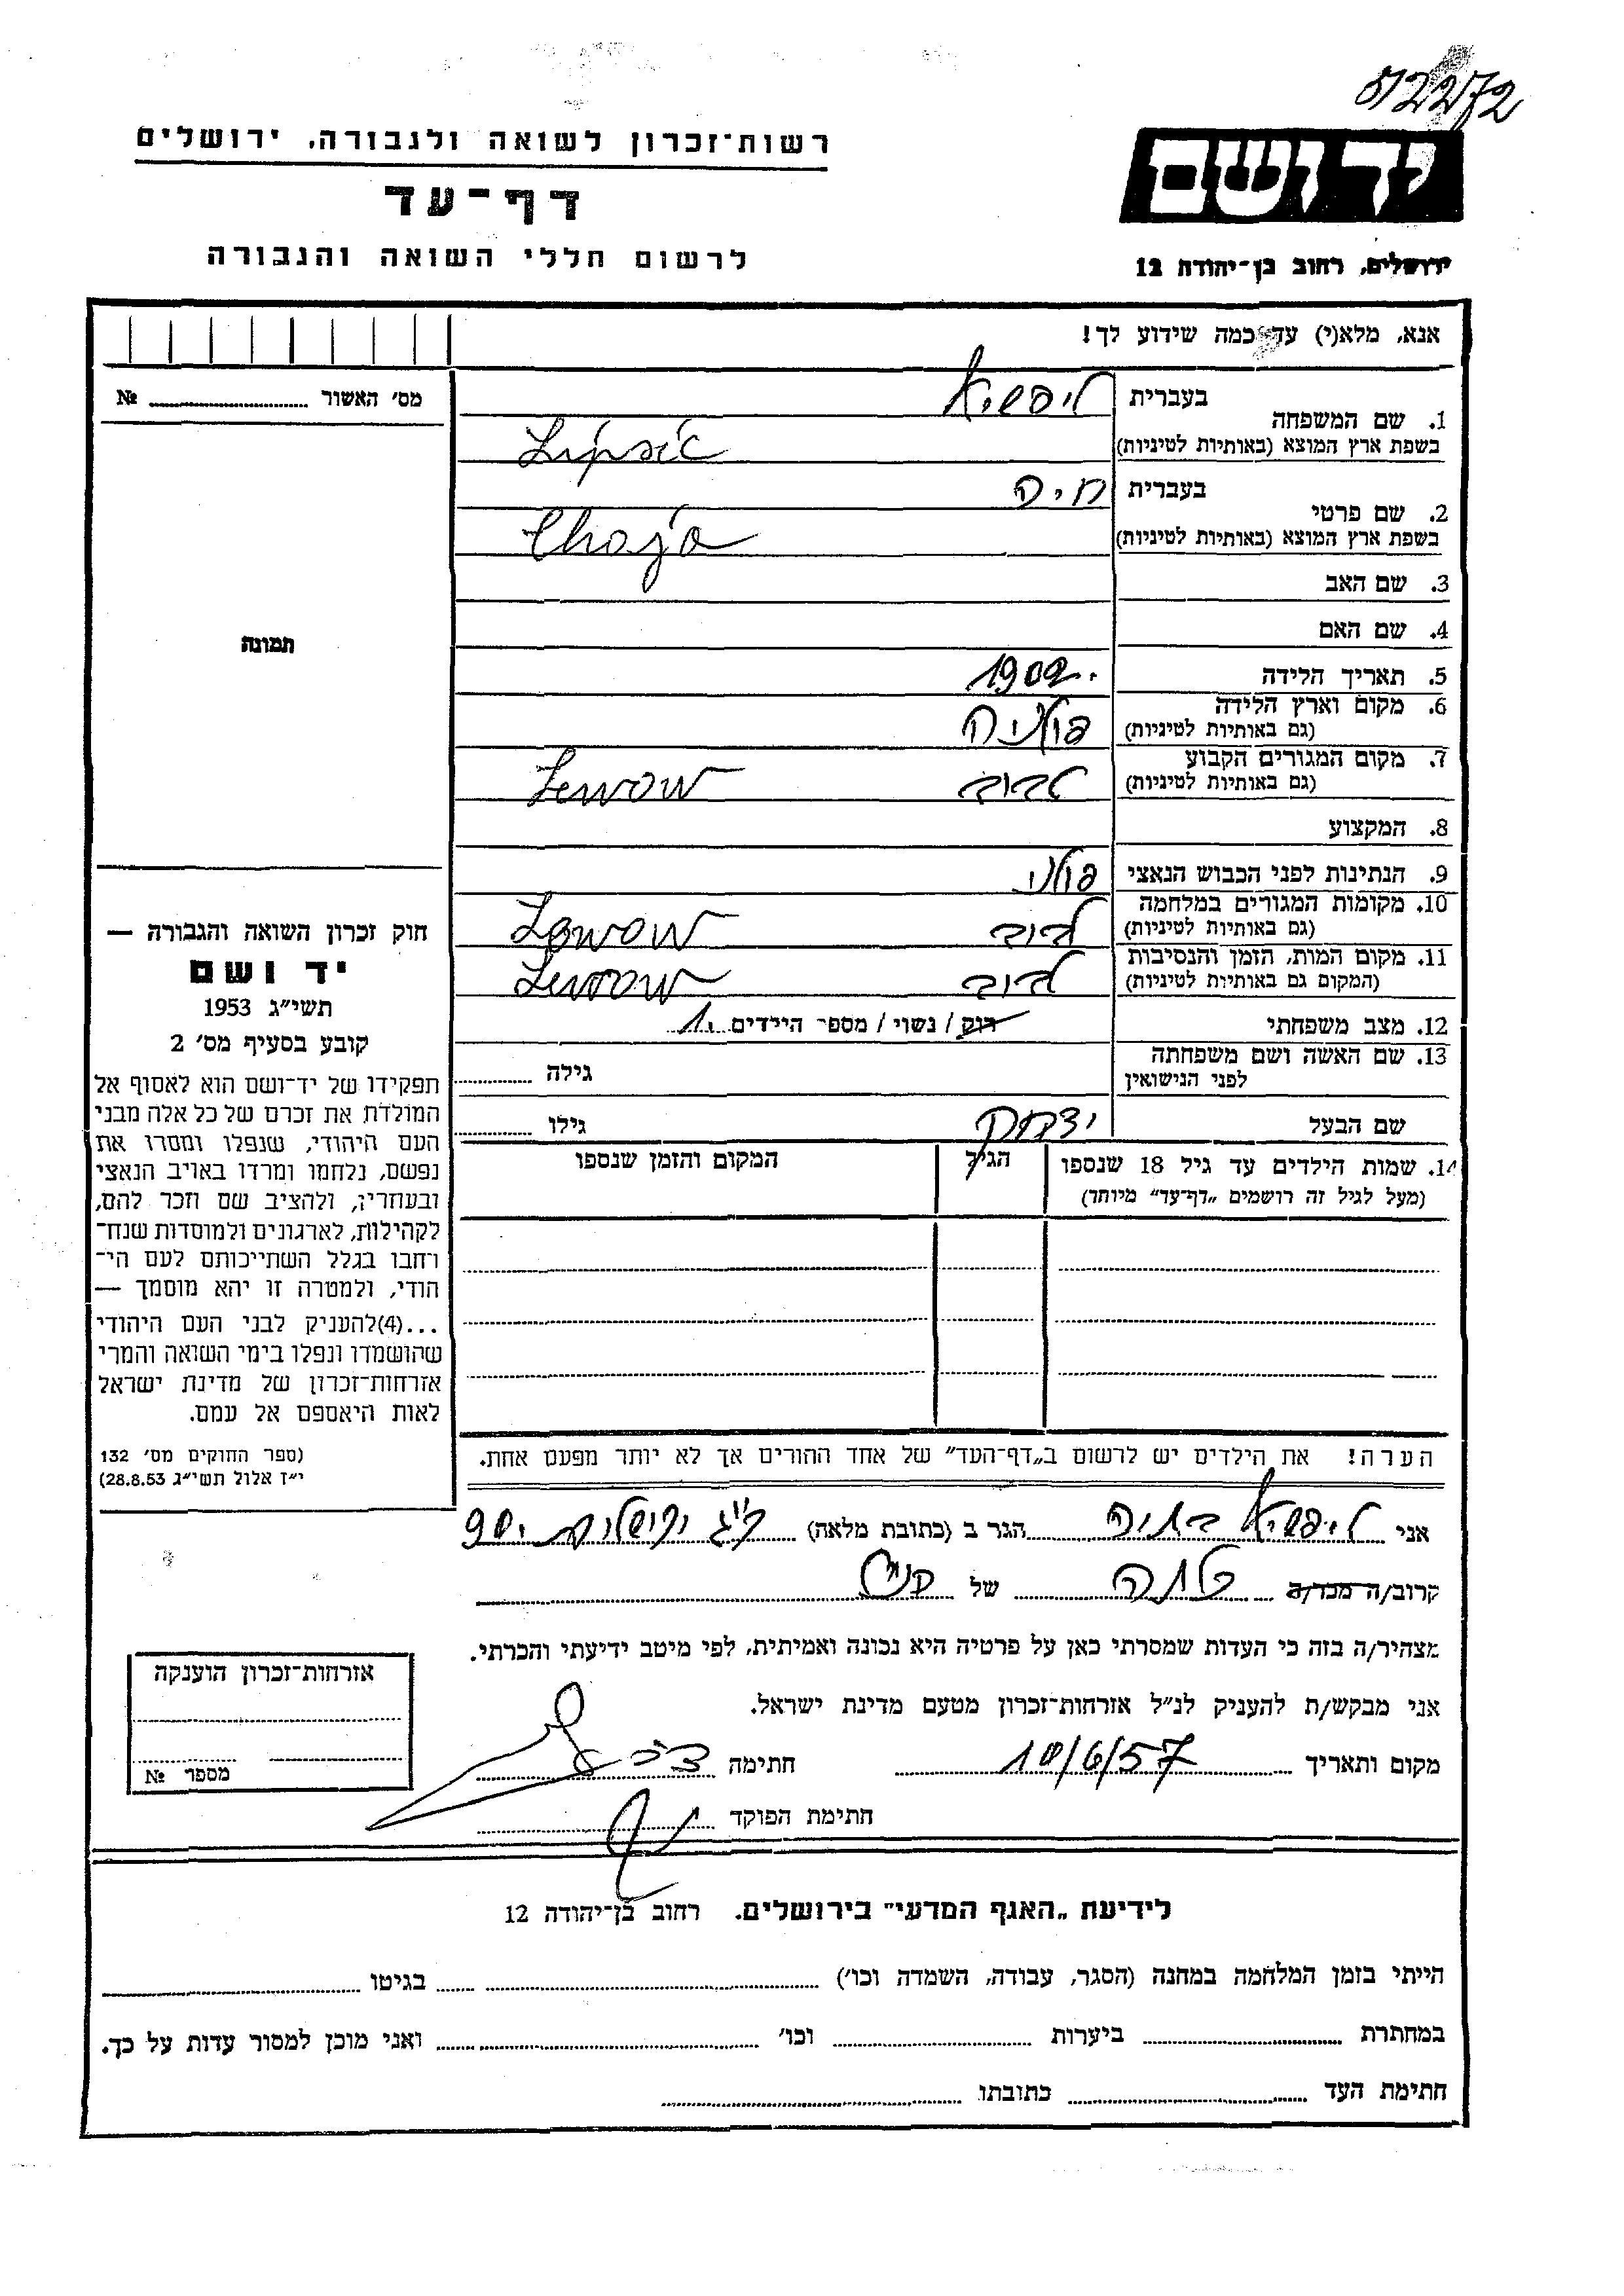 512272
רשות־זכרון לשואה ולגבורה, ירושלים
דף־עד
לרשום חללי השואה והגבורה
יד ושם
ירושלים, רחוב בן־יהודה 12
אנא, מלא(י) עד כמה שידוע לך!
מס׳ האשור № ........
תמונה
1. שם המשפחה בעברית ליפשיץ
בשפת ארץ המוצא (באותיות לטיניות) Lipsic
2. שם פרטי בעברית חיה
בשפת ארץ המוצא (באותיות לטיניות) Chaja
3. שם האב
4. שם האם
5. תאריך הלידה 1902
6. מקום וארץ הלידה
(גם באותיות לטיניות) פולניה
7. מקום המגורים הקבוע
(גם באותיות לטיניות) לבוב Lewow
8. המקצוע
9. הנתינות לפני הכבוש הנאצי פולני
10. מקומות המגורים במלחמה
(גם באותיות לטיניות) לבוב Lewow
11. מקום המות, הזמן והנסיבות
(המקום גם באותיות לטיניות) לבוב Lewow
12. מצב משפחתי רוק / נשוי / מספר הילדים 1
13. שם האשה ושם משפחתה
לפני הנישואין גילה ........
שם הבעל יצחק גילו ........
14. שמות הילדים עד גיל 18 שנספו הגיל המקום והזמן שנספו
(מעל לגיל זה רושמים „דף־עד” מיוחד)
הערה! את הילדים יש לרשום ב„דף־העד” של אחד ההורים אך לא יותר מפעם אחת.
חוק זכרון השואה והגבורה —
יד ושם
תשי״ג 1953
קובע בסעיף מס׳ 2
תפקידו של יד־ושם הוא לאסוף אל
המולדת את זכרם של כל אלה מבני
העם היהודי, שנפלו ומסרו את
נפשם, נלחמו ומרדו באויב הנאצי
ובעוזריו, ולהציב שם וזכר להם,
לקהילות, לארגונים ולמוסדות שנח־
רחבו בגלל השתייכותם לעם הי־
הודי, ולמטרה זו יהא מוסמך —
...(4)להעניק לבני העם היהודי
שהושמדו ונפלו בימי השואה והמרי
אזרחות־זכרון של מדינת ישראל
לאות היאספם אל עמם.
(ספר החוקים מס׳ 132
י״ז אלול תשי״ג 28.8.53)
אני ליפשיץ הגר ב (כתובת מלאה)
קרוב/ה מכר/ה של
מצהיר/ה בזה כי העדות שמסרתי כאן על פרטיה היא נכונה ואמיתית, לפי מיטב ידיעתי והכרתי.
אני מבקש/ת להעניק לנ״ל אזרחות־זכרון מטעם מדינת ישראל.
מקום ותאריך 10/6/57 חתימה
חתימת הפוקד
אזרחות־זכרון הוענקה
מספר №
לידיעת „האגף המדעי” בירושלים. רחוב בן־יהודה 12
הייתי בזמן המלחמה במחנה (הסגר, עבודה, השמדה וכו׳) ........ בגיטו ........
במחתרת ........ ביערות ........ וכו׳ ........ ואני מוכן למסור עדות על כך.
חתימת העד ........ כתובתו ........